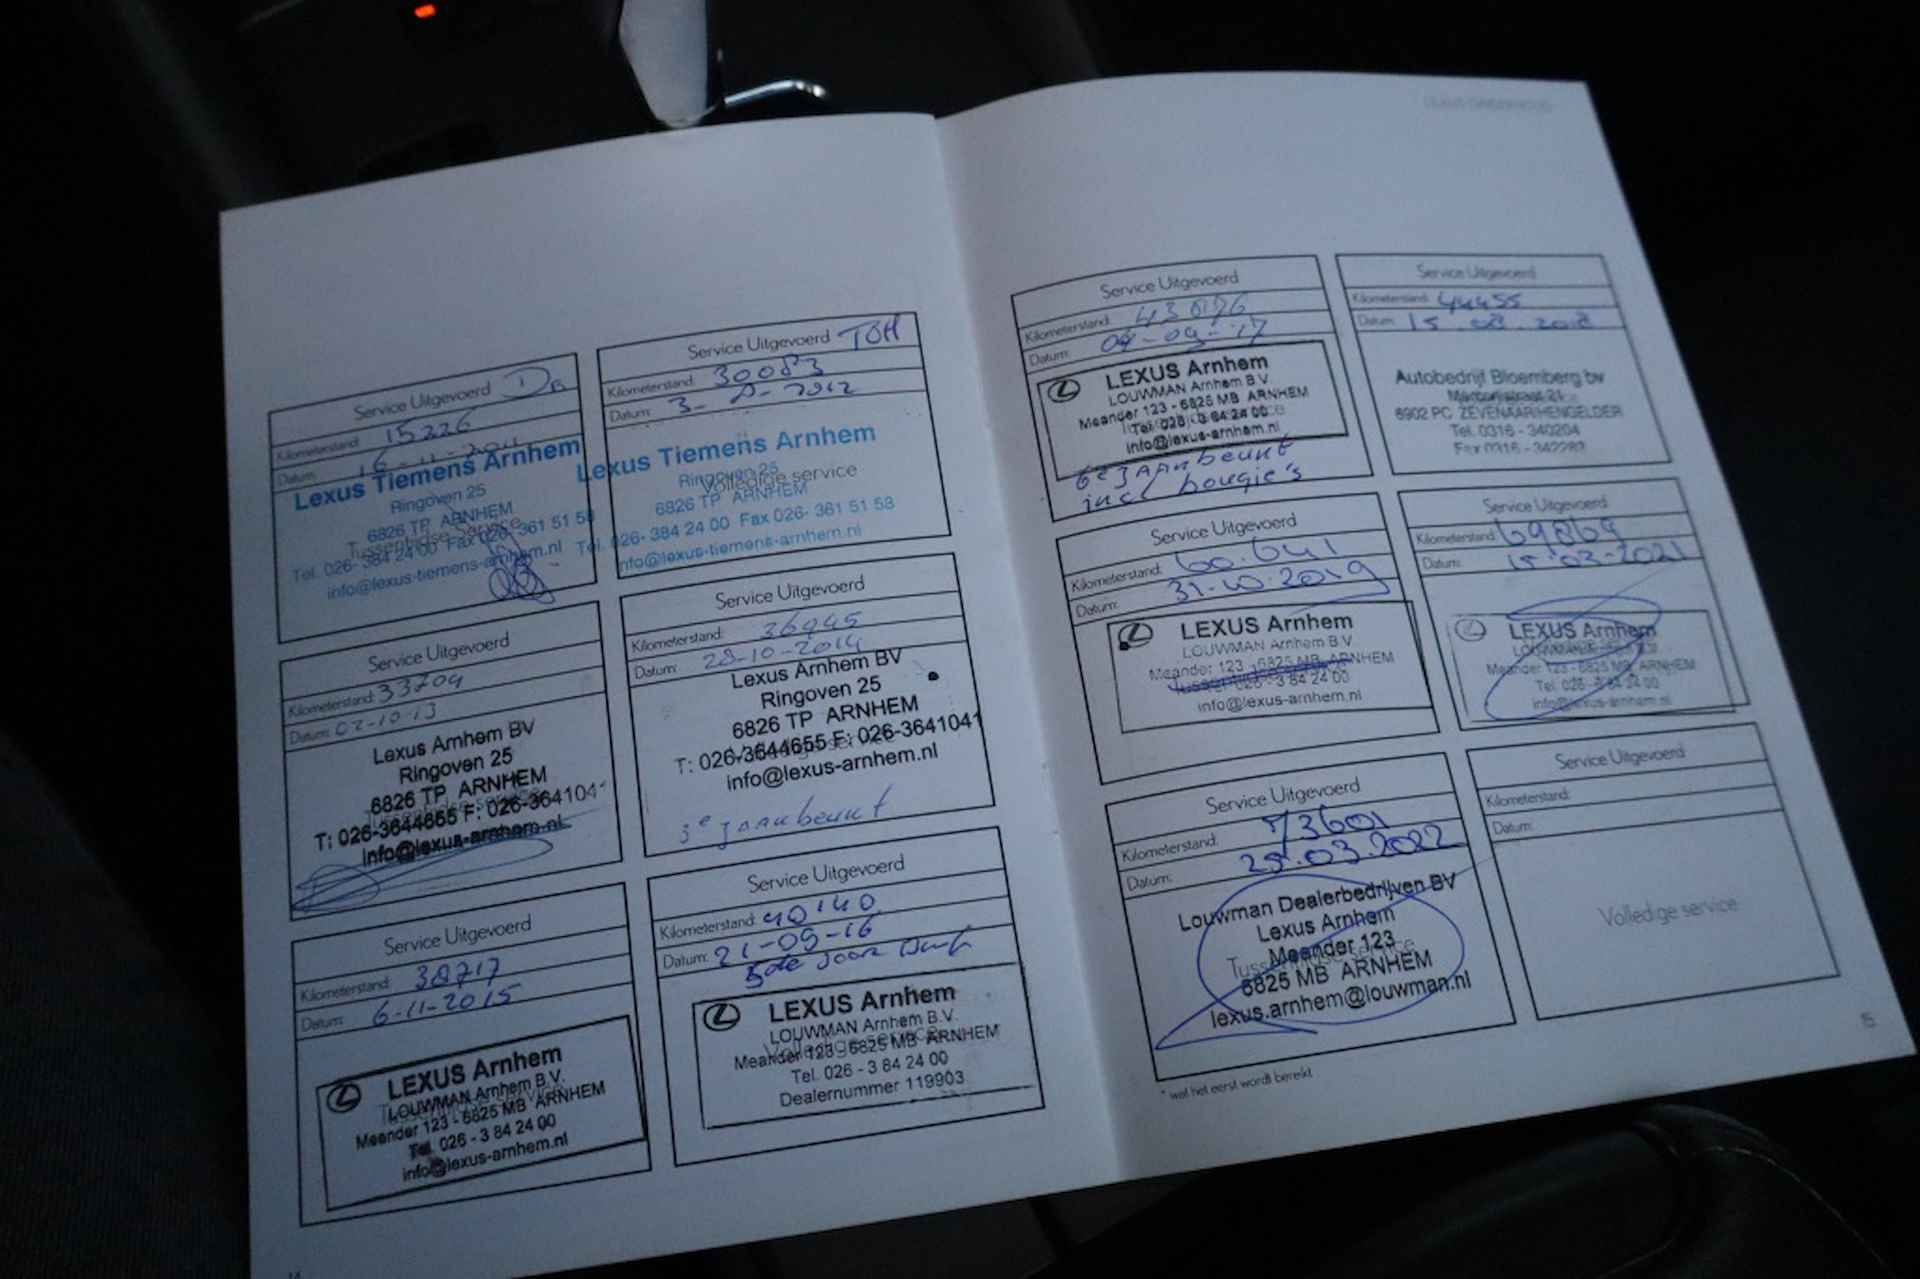 Service Uitgevoerd
Kilometerstand: 15226
Datum: 16-11-2011
Lexus Tiemens Arnhem
Ringoven 25
6826 TP ARNHEM
Tussentijdse service
Tel. 026- 384 24 00 Fax 026- 361 51 58
info@lexus-tiemens-arnhem.nl
Service Uitgevoerd TOH
Kilometerstand: 30083
Datum: 3- -2012
Lexus Tiemens Arnhem
Ringoven 25
Volledige service
6826 TP ARNHEM
Tel. 026- 384 24 00 Fax 026- 361 51 58
info@lexus-tiemens-arnhem.nl
Service Uitgevoerd
Kilometerstand: 33704
Datum: 02-10-13
Lexus Arnhem BV
Ringoven 25
6826 TP ARNHEM
Tussentijdse service
T: 026-3644655 F: 026-3641041
info@lexus-arnhem.nl
Service Uitgevoerd
Kilometerstand: 36945
Datum: 28-10-2014
Lexus Arnhem BV
Ringoven 25
6826 TP ARNHEM
Volledige service
T: 026-3644655 F: 026-3641041
info@lexus-arnhem.nl
3e jaarbeurt
Service Uitgevoerd
Kilometerstand: 38717
Datum: 6-11-2015
LEXUS Arnhem
LOUWMAN Arnhem B.V.
Tussentijdse service
Meander 123 - 6825 MB ARNHEM
Tel. 026 - 3 84 24 00
info@lexus-arnhem.nl
Service Uitgevoerd
Kilometerstand: 40140
Datum: 21-09-16
5de jaar
LEXUS Arnhem
LOUWMAN Arnhem B.V.
Volledige service
Meander 123 - 6825 MB ARNHEM
Tel. 026 - 3 84 24 00
Dealernummer 119903
14
Service Uitgevoerd
Kilometerstand: 43076
Datum: 04-09-'17
LEXUS Arnhem
LOUWMAN Arnhem B.V.
Meander 123 - 6825 MB ARNHEM
Tel. 026 - 3 84 24 00
info@lexus-arnhem.nl
6e jaarbeurt
incl bougie's
Service Uitgevoerd
Kilometerstand: 44455
Datum: 15.08.2018
Autobedrijf Bloemberg bv
6902 PC ZEVENAAR/HENGELDER
Tel. 0316 - 340204
Fax 0316 - 342283
Service Uitgevoerd
Kilometerstand: 60.641
Datum: 31-10-2019
LEXUS Arnhem
LOUWMAN Arnhem B.V.
Meander 123 - 6825 MB ARNHEM
Tussentijdse service
Tel. 026 - 3 84 24 00
info@lexus-arnhem.nl
Service Uitgevoerd
Kilometerstand: 69869
Datum: 15-03-2021
LEXUS Arnhem
LOUWMAN Arnhem B.V.
Meander 123 - 6825 MB ARNHEM
Tel. 026 - 3 84 24 00
info@lexus-arnhem.nl
Service Uitgevoerd
Kilometerstand: 73601
Datum: 29.03.2022
Louwman Dealerbedrijven BV
Lexus Arnhem
Meander 123
Tussentijdse service
6825 MB ARNHEM
lexus.arnhem@louwman.nl
Service Uitgevoerd
Kilometerstand:
Datum:
Volledige service
* wat het eerst wordt bereikt
15